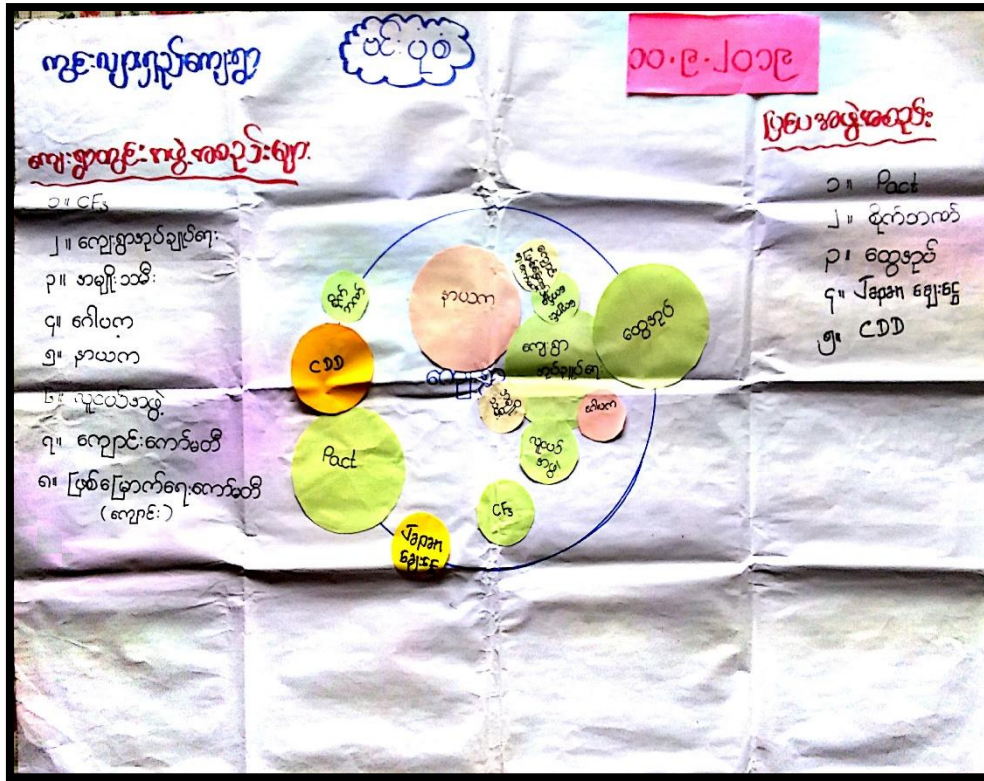 ကွန်းလျားရှည်ကျေးရွာ
ဗင်းပုံစံ
၁၀.၉.၂၀၁၉
ကျေးရွာတွင်းအဖွဲ့အစည်းများ
၁။ CFs
၂။ ကျေးရွာအုပ်ချုပ်ရေး
၃။ အမျိုးသမီး
၄။ ဂေါပက
၅။ နာယက
၆။ လူငယ်အဖွဲ့
၇။ ကျောင်းကော်မတီ
၈။ ဖြစ်မြောက်ရေးကော်မတီ
(ကျောင်း)
ပြင်ပအဖွဲ့အစည်း
၁။ Pact
၂။ စိုက်ဘဏ်
၃။ ထွေအုပ်
၄။ Japan ချေးငွေ
၅။ CDD
စိုက်
ဘဏ်
နာယက
ထွေအုပ်
CDD
ကျေးရွာ
အုပ်ချုပ်ရေး
ကျေးရွာ
ဂေါပက
Pact
လူငယ်
အဖွဲ့
CFs
Japan
ချေးငွေ